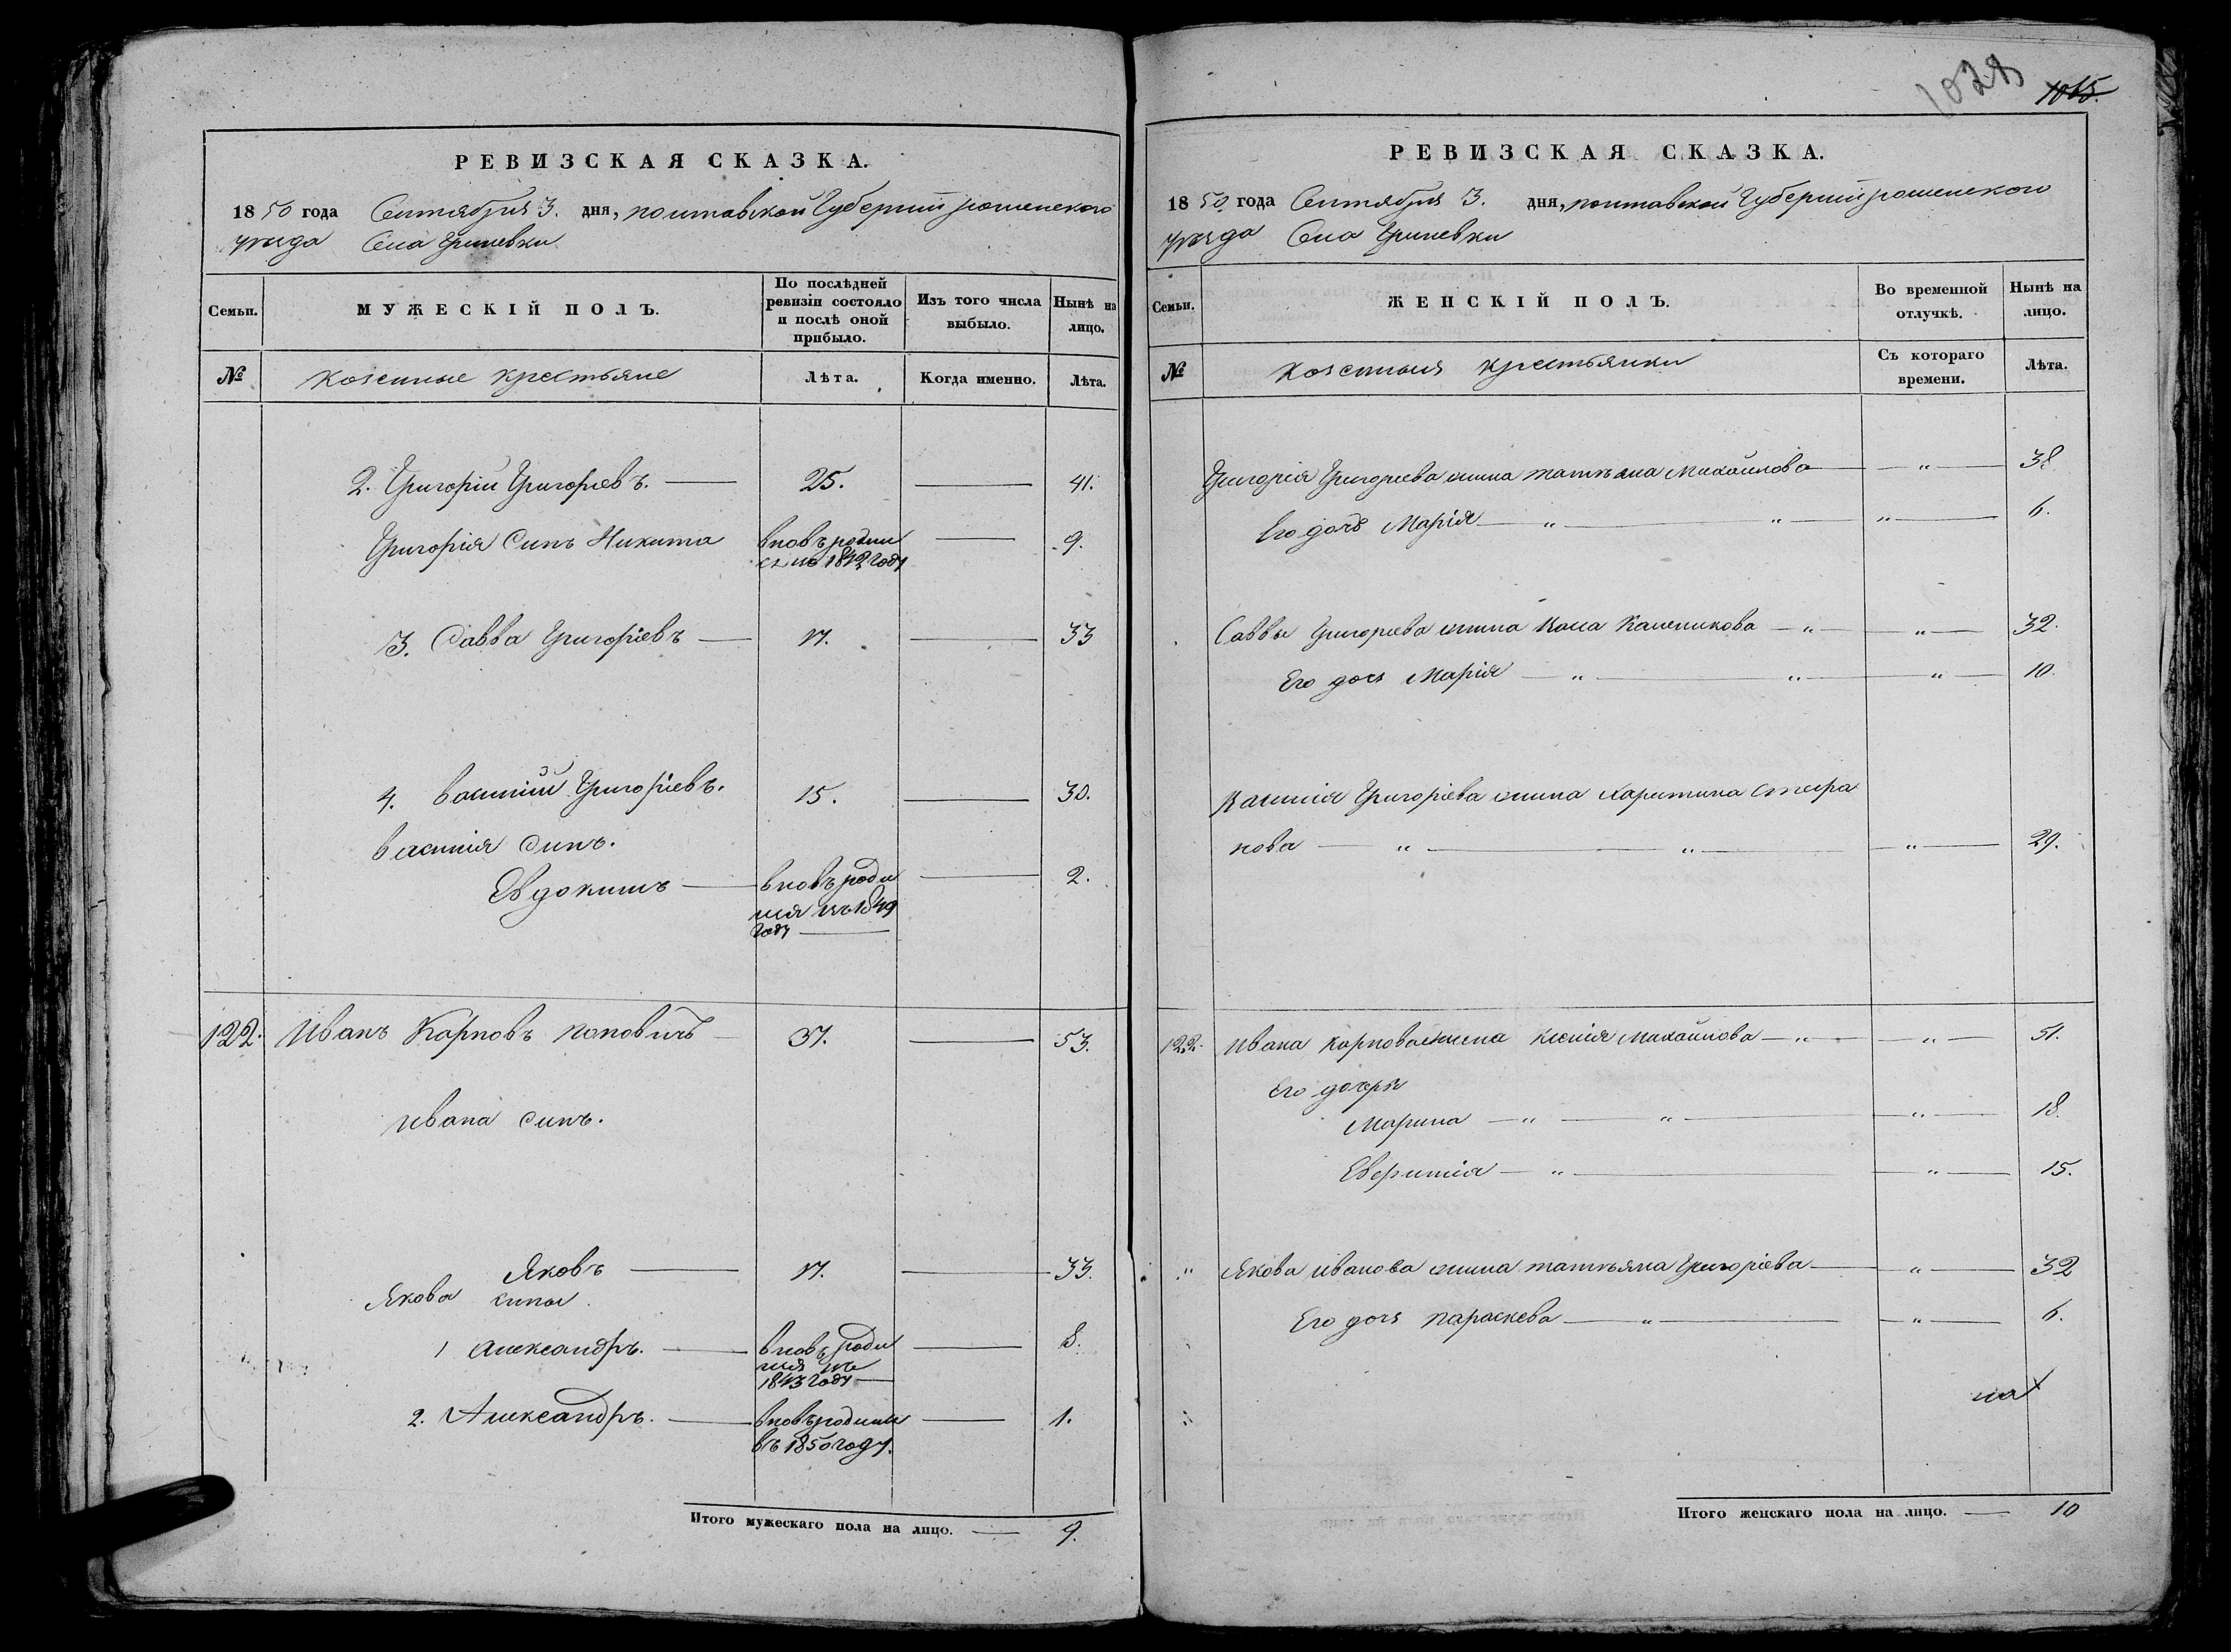 РЕВИЗСКАЯ СКАЗКА.
1850 года Сентября 3. дня, полтавской Губерніи роменского
уѣзда Села Гриневки
Семьи.
МУЖЕСКІЙ ПОЛЪ.
По послѣдней
ревизіи состояло
и послѣ оной
прибыло.
Изъ того числа
выбыло.
Нынѣ на
лицо.
№ Козенные крестьяне Лѣта. Когда именно. Лѣта.
2. Григорій Григорьевъ. — 25. — 41.
Григорія Синъ Никита вновъ родил — 9.
ся 1842 году
3. Савва Григоріевъ — 17. — 33
4. Василій Григоріевъ. 15. — 30.
Василія Синъ.
Евдокимъ — вновъ роди — 2.
лся въ 1849
году —
122. Иванъ Карповъ поповичъ — 37. — 53.
Ивана синъ.
Яковъ — 17. — 33.
Якова сины.
1 Александръ. — вновъ роди — 8.
лся въ
1843 году —
2. Александръ. — вновъ родился — 1.
въ 1850 году.
Итого мужескаго пола на лицо. — 9.
1028
1015.
РЕВИЗСКАЯ СКАЗКА.
1850 года Сентября 3. дня, полтавской Губерніи роменского
уѣзда Села Гриневки
Семьи.
ЖЕНСКІЙ ПОЛЪ.
Во временной
отлучкѣ.
Нынѣ на
лицо.
№ Козенныя крестьянки
Съ котораго
времени.
Лѣта.
Григорія Григорьева жина татьяна Михайлова — „ — 38
Его дочь Марія — „ — „ — „ — 6.
Саввы Григорьева жина Калениkова — „ — „ — 32.
Его дочь Марія — „ — „ — „ — 10.
Василія Григоріева жина Харитина Стефа
нова — „ — „ — „ — 29.
122. Ивана Карпова жина Ксенія Михайлова — „ — „ — 51.
Его дочери
Марина — „ — „ — „ — 18.
Евфимія — „ — „ — 15.
„ Якова Иванова жина татьяна Григоріева — „ — 32
Его дочь Параскева — „ — „ — 6.
Итого женскаго пола на лицо. — 10